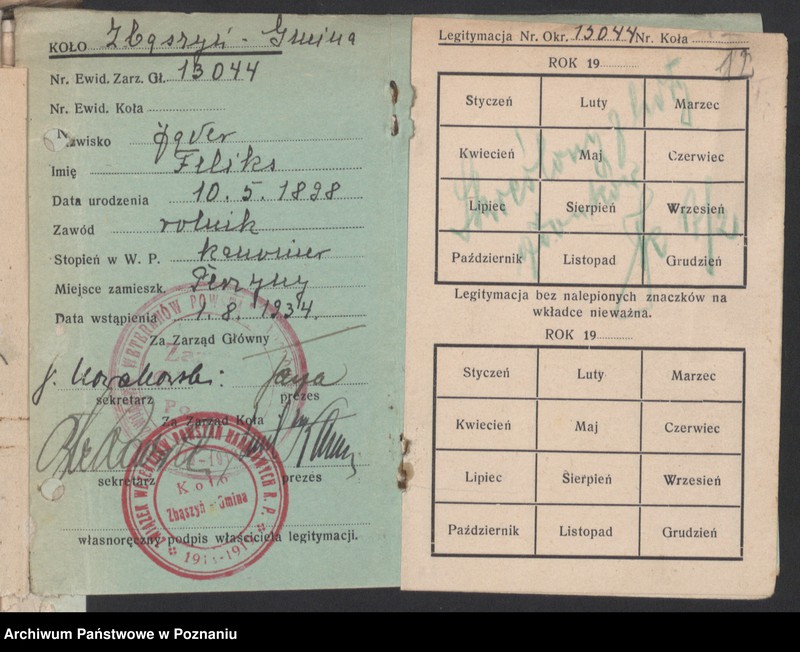 KOŁO Zbąszyń - Gmina
Nr. Ewid. Zarz. Gł. 13044
Nr. Ewid. Koła
Nazwisko
Imię Feliks
Data urodzenia 10. 5. 1898
Zawód rolnik
Stopień w W. P. kanonier
Miejsce zamieszk. Perzyny
Data wstąpienia 1. 8. 1934.
Za Zarząd Główny
sekretarz prezes
Za Zarząd Koła
sekretarz prezes
ZWIĄZEK WETERANÓW POWSTAŃ NARODOWYCH R. P.
Koło
Zbąszyń - Gmina
własnoręczny podpis właściciela legitymacji.
Legitymacja Nr. Okr. 13044 Nr. Koła
12
ROK 19
Styczeń Luty Marzec
Kwiecień Maj Czerwiec
Lipiec Sierpień Wrzesień
Październik Listopad Grudzień
Legitymacja bez nalepionych znaczków na
wkładce nieważna.
ROK 19
Styczeń Luty Marzec
Kwiecień Maj Czerwiec
Lipiec Sierpień Wrzesień
Październik Listopad Grudzień
Archiwum Państwowe w Poznaniu